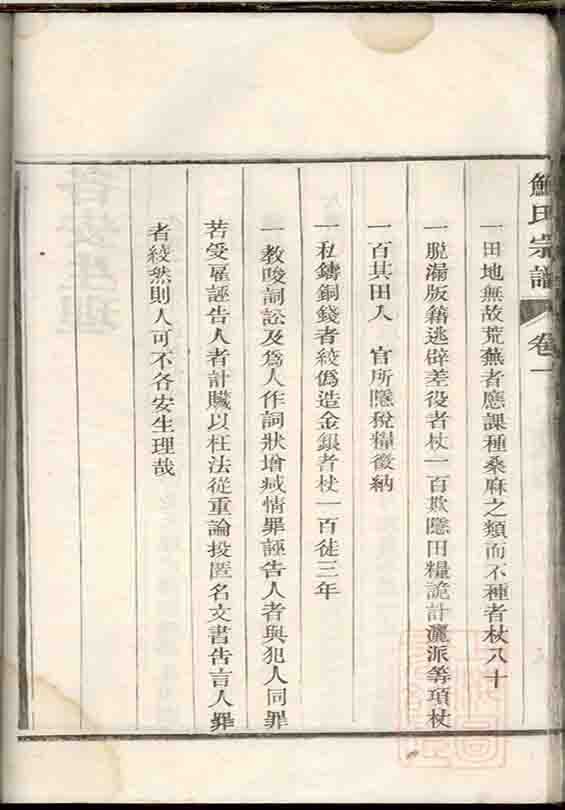 鮑氏宗譜 卷一
一田地無故荒蕪者應課種桑麻之類而不種者杖八十
一脫漏版籍逃避差役者杖一百欺隱田糧詭計灑派等項杖
一百其田入 官所隱稅糧徵納
一私鑄銅錢者絞僞造金銀者杖一百徒三年
一教唆詞訟及爲人作詞狀增減情罪誣告人者與犯人同罪
若受雇誣告人者計贓以枉法從重論投匿名文書告言人罪
者絞然則人可不各安生理哉
各安生理